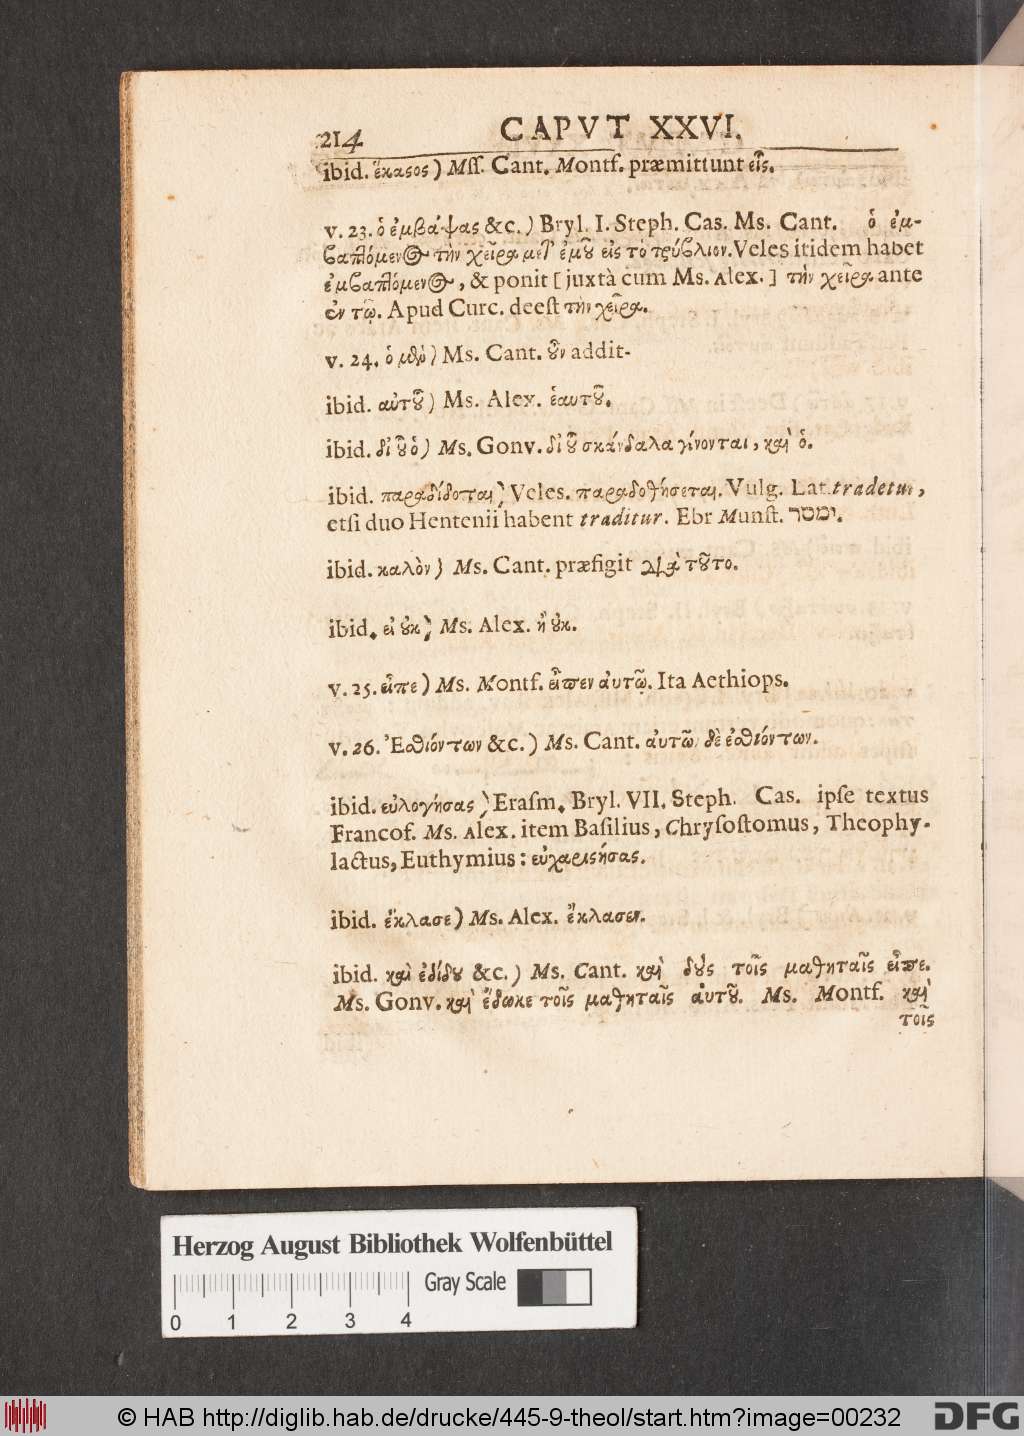 214 CAPVT XXVI.
ibid. ἕκαστος) Mſſ. Cant. Montf. præmittunt εἷς.
v. 23. ὁ ἐμβάψας &c.) Bryl. I. Steph. Cas. Ms. Cant. ὁ ἐμ-
βαπτόμενος τὴν χεῖρα μετ' ἐμοῦ εἰς τὸ τρύβλιον. Veles itidem habet
ἐμβαπτόμενος, & ponit [juxtà cum Ms. Alex.] τὴν χεῖρα ante
ἐν τῷ. Apud Curc. deeſt τὴν χεῖρα.
v. 24. ὁ μὲν) Ms. Cant. οὖν addit.
ibid. αὐτοῦ) Ms. Alex. ἑαυτοῦ.
ibid. δι' οὗ ὁ) Ms. Gonv. δι' οὗ σκάνδαλα γίνονται, καὶ ὁ.
ibid. παραδίδοται) Veles. παραδοθήσεται. Vulg. Lat. tradetur,
etſi duo Hentenii habent traditur. Ebr Munſt. ימסר.
ibid. καλὸν) Ms. Cant. præfigit διὰ τοῦτο.
ibid. εἰ οὐκ) Ms. Alex. ἢ οὐκ.
v. 25. εἶπε) Ms. Montf. εἶπεν αὐτῷ. Ita Aethiops.
v. 26. Ἐσθιόντων &c.) Ms. Cant. αὐτῶν δὲ ἐσθιόντων.
ibid. εὐλογήσας) Eraſm. Bryl. VII. Steph. Cas. ipſe textus
Francof. Ms. Alex. item Baſilius, Chryſoſtomus, Theophy-
lactus, Euthymius: εὐχαριστήσας.
ibid. ἔκλασε) Ms. Alex. ἔκλασεν.
ibid. καὶ ἐδίδου &c.) Ms. Cant. καὶ δοὺς τοῖς μαθηταῖς εἶπε.
Ms. Gonv. καὶ ἔδωκε τοῖς μαθηταῖς αὐτοῦ. Ms. Montf. καὶ
τοῖς
Herzog August Bibliothek Wolfenbüttel
Gray Scale
0 1 2 3 4
© HAB http://diglib.hab.de/drucke/445-9-theol/start.htm?image=00232
DFG